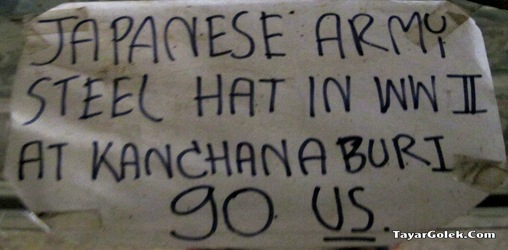 JAPANESE ARMY
STEEL HAT IN WW II
AT KANCHANABURI
90 US.
TayarGolek.Com